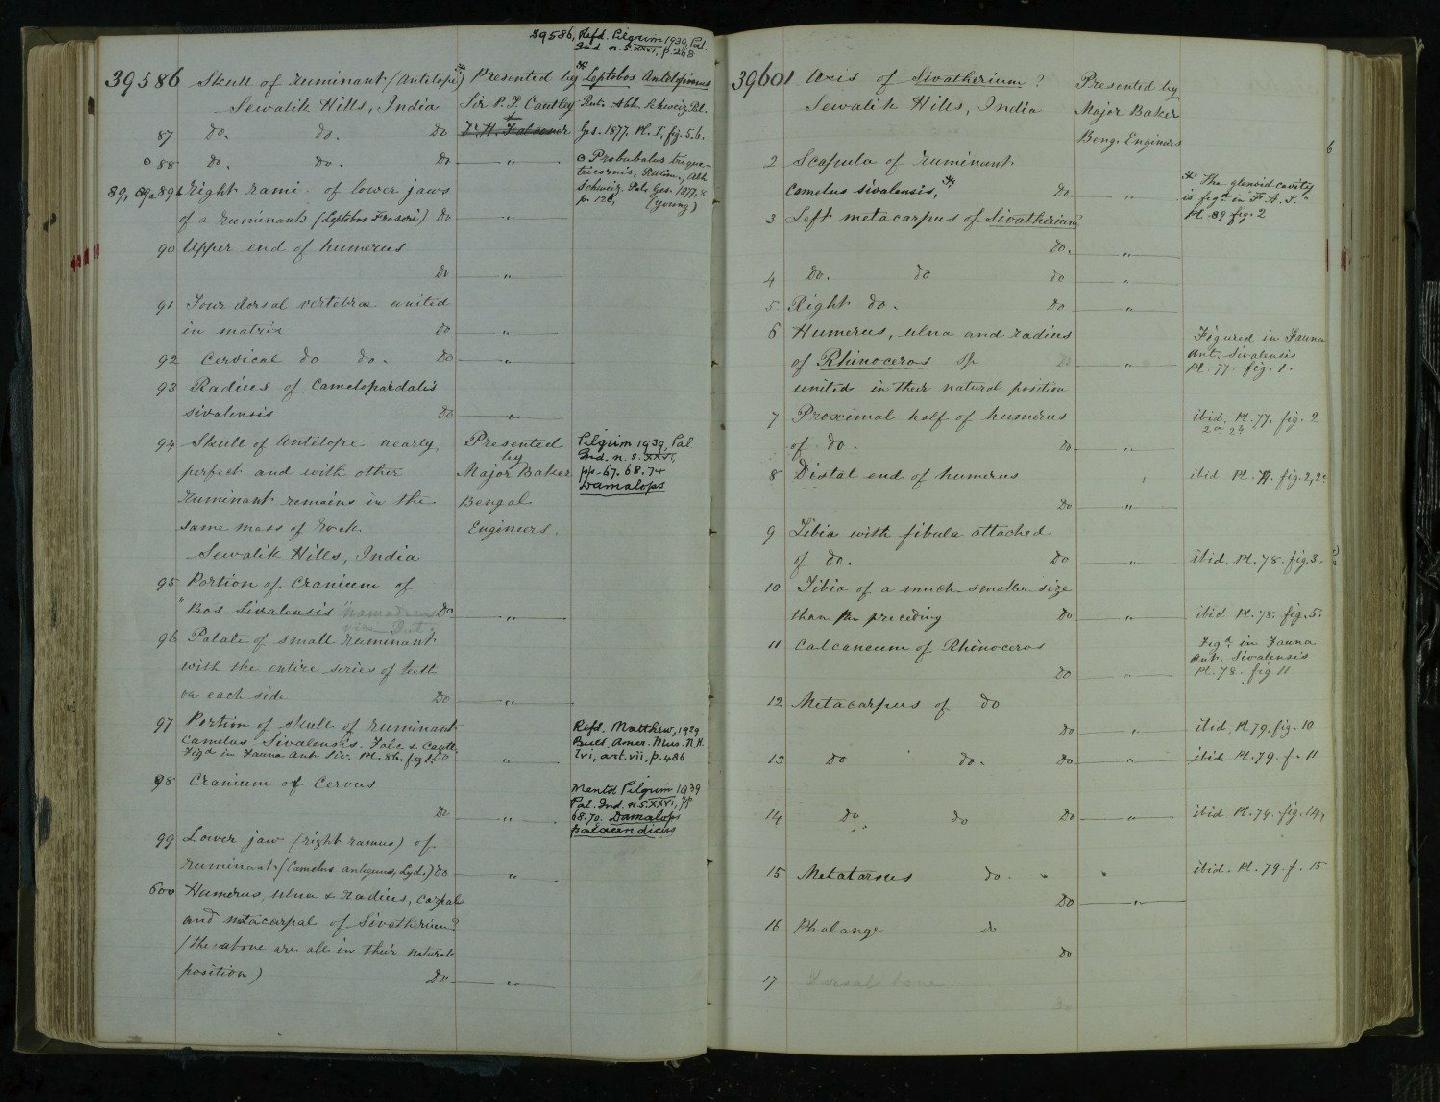 39586, Refd. Pilgrim 1939, Pal.
Ind. n.s. XXVI, p. 268
39586 Skull of ruminant (Antilope) Presented by Leptobos Antilopinus
Sewalik Hills, India Sir P. T. Cautley Rüti. Abh. Schweiz. Pal.
87 Do. Do. Do Dr. H. Falconer Ges. 1877. Pl. I, fig. 5.6.
88 Do. Do. Do " Probubalus trique-
tricornis, Rütim., Abh.
89, 89a 89b Right rami of lower jaws Schweiz. Pal. Ges. 1877.
of a ruminants (Leptobos Frasori) Do " p. 126, (young)
90 Upper end of humerus
Do "
91 Four dorsal vertebra united
in matrix Do "
92 Cervical do do. Do "
93 Radius of Camelopardalis
sivalensis Do "
94 Skull of Antilope nearly Presented Pilgrim 1939, Pal.
perfect and with other by Ind. n. s. XXVI,
Major Baker pp. 67. 68. 74
ruminant remains in the Bengal Damalops
same mass of rock Engineers.
Sewalik Hills, India
95 Portion of Cranium of
Bos Sivalensis Do "
96 Palate of small ruminant
with the entire series of teeth
on each side Do "
97 Portion of skull of ruminant Refd. Matthew, 1929
Camelus Sivalensis. Falc & Cautl. Bull. Amer. Mus. N.H.
Figd in Fauna Ant. Siv. Pl. 86. fig 2. Do " lvi, art. vii, p. 486
98 Cranium of Cervus Mentd Pilgrim 1939
Pal. Ind. n.s. XXVI, pp
Do " 68.70. Damalops
palaeindicus
99 Lower jaw (right ramus) of
ruminant (Camelus antiquus, Lyd.) Do "
600 Humerus, ulna & radius, carpal
and metacarpal of Sivatherium?
(the above are all in their natural
position) Do "
39601 Axis of Sivatherium? Presented by
Sewalik Hills, India Major Baker
Beng. Engineers
6
2 Scapula of ruminant
Camelus sivalensis, Do " The glenoid cavity
is figd in "F. A. S."
Pl. 89 fig. 2
3 Left metacarpus of Sivatherium?
Do. "
4 Do. do Do "
5 Right do. Do "
6 Humerus, ulna and radius Figured in Fauna
of Rhinoceros sp Do " Ant. Sivalensis
united in their natural position Pl. 77. fig. 1.
7 Proximal half of humerus ibid. Pl. 77. fig. 2
of do. Do " 2a 2b
8 Distal end of humerus ibid Pl. 77. fig. 2, 2c
Do "
9 Tibia with fibula attached
of do. Do " ibid. Pl. 78. fig. 3.
10 Tibia of a much smaller size
than the preceding Do " ibid Pl. 78. fig. 5.
11 Calcaneum of Rhinoceros Figd in Fauna
Ant. Sivalensis
Do " Pl. 78. fig 11
12 Metacarpus of do
Do " ibid, Pl. 79. fig. 10
13 Do do. Do " ibid Pl. 79. f. 11
14 Do do Do " ibid Pl. 79. fig. 14,
15 Metatarsus do. ibid. Pl. 79. f. 15
Do "
16 Phalange do
Do
17 Dorsal bone
Do